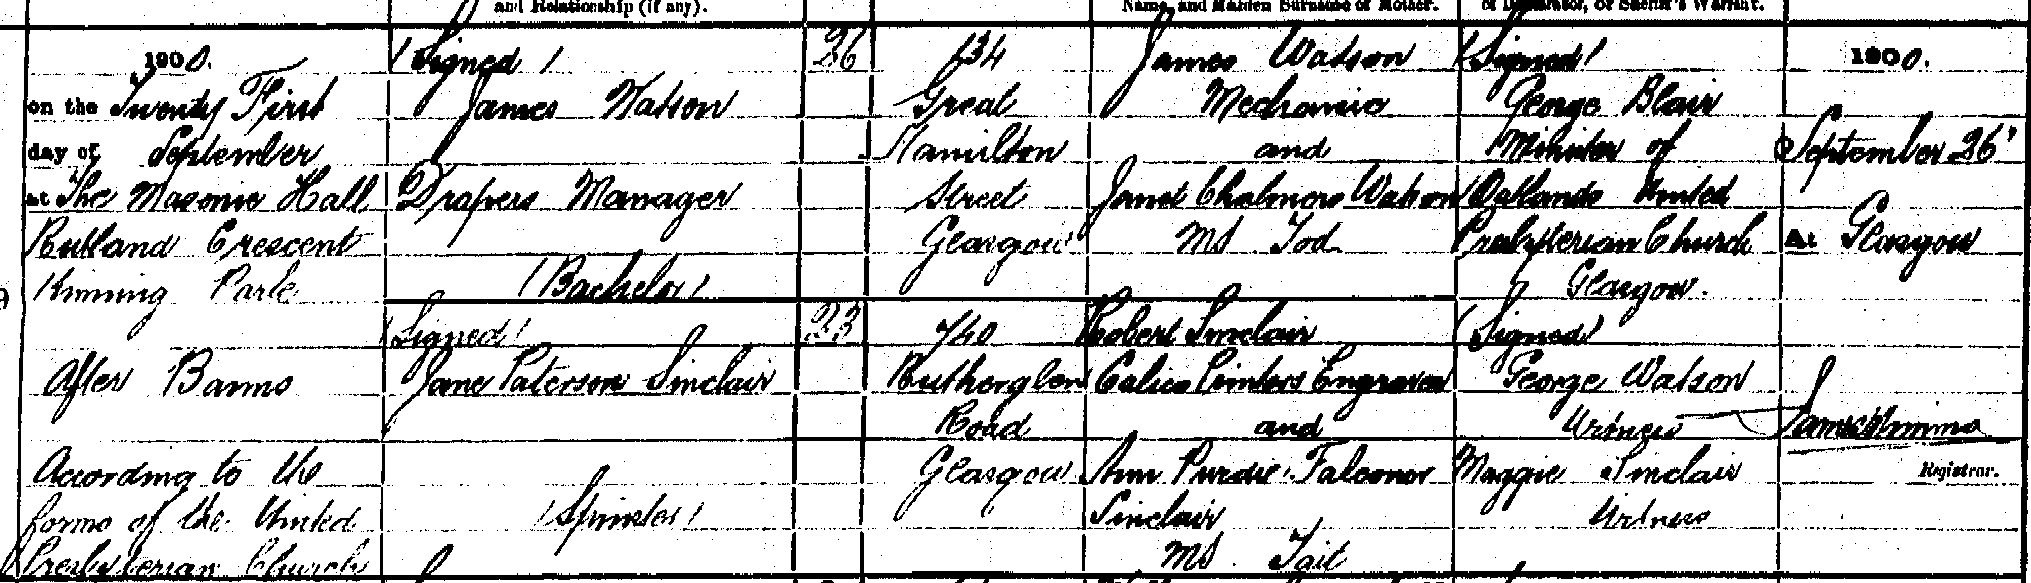 and Relationship (if any).
Name, and Maiden Surname of Mother.
or Declarator, or Sheriff's Warrant.
1900.
on the Twenty First
day of September
at The Masonic Hall
Rutland Crescent
Kinning Park
After Banns
According to the
forms of the United
Presbyterian Church
(Signed)
James Watson
Drapers Manager
(Bachelor)
(Signed)
Jane Paterson Sinclair
(Spinster)
26
23
134
Great
Hamilton
Street
Glasgow
740
Rutherglen
Road
Glasgow
James Watson
Mechanic
and
Janet Chalmers Watson
MS Tod
Robert Sinclair
Calico Printers Engraver
and
Ann Purdie Falconer
Sinclair
MS Tait
(Signed)
George Blair
Minister of
Oatlands United
Presbyterian Church
Glasgow.
(Signed)
George Watson
Witness
Maggie Sinclair
Witness
1900.
September 26
At Glasgow
James Mimmo
Registrar.